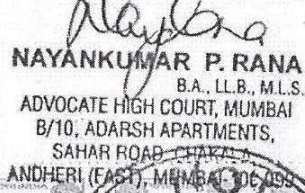 NAYANKUMAR P. RANA
B.A., LL.B., M.L.S.
ADVOCATE HIGH COURT, MUMBAI
B/10, ADARSH APARTMENTS,
SAHAR ROAD, CHAKALA
ANDHERI (EAST), MUMBAI